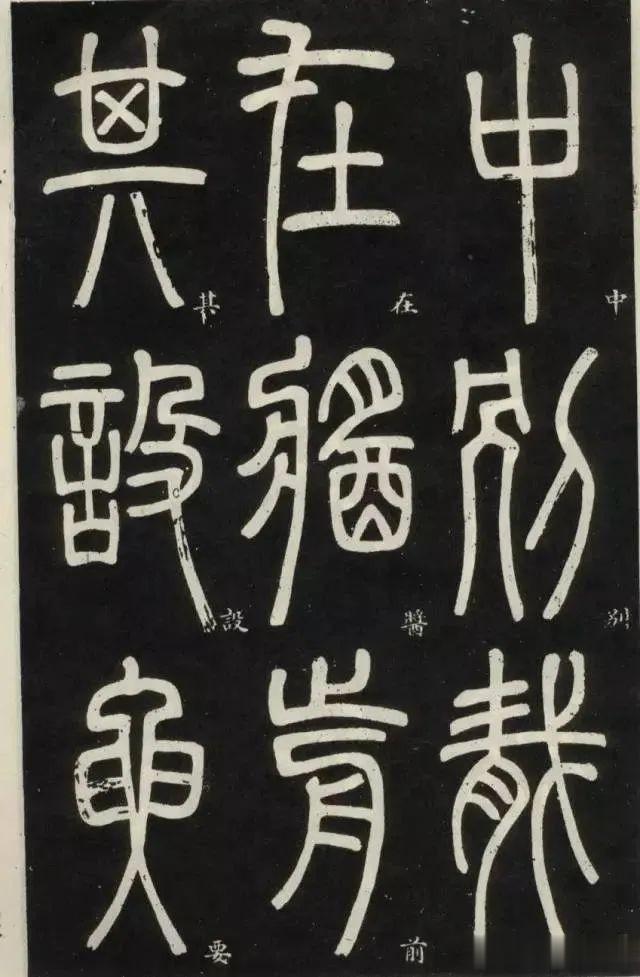 中別胾
在醬前
其設要